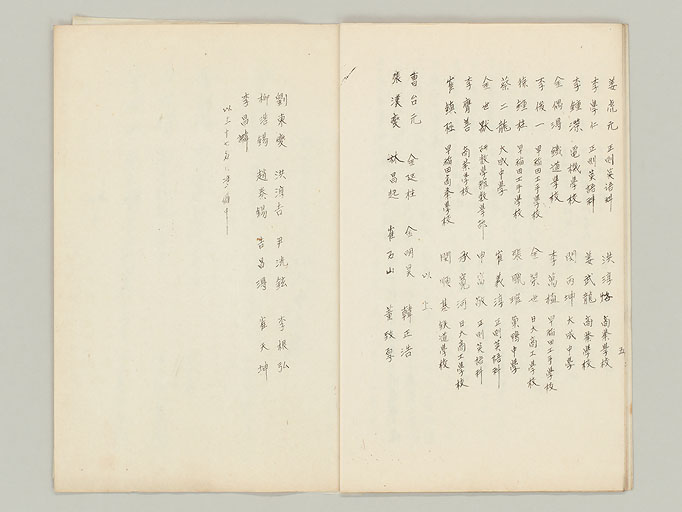 姜虎元 正則英語科
李學仁 正則英語科
李鍾滐 電機學校
金偶鴻 鐵道學校
李俊一 早稲田工手學校
徐鍾柱 早稲田工手學校
蔡二龍 大成中學
金世默 研數學館數學部
李膺善 商業學校
崔鎮極 早稲田商業學校
洪淳格 商業學校
姜武龍 商業學校
閔丙坤 大成中學
李萬植 早稲田工手學校
金榮世 日大商工學校
張職雄 京橋中學
崔義淳 正則英語科
申富敬 正則英語科
承寬河 日大商工學校
閔順基 鉄道學校
以上
五
曹台元 金廷柱 金明昊 韓正浩
張漢燮 林昌起 崔石山 董致擎
劉東燮 洪淳吉 尹流鉉 李根弘
柳浩錫 趙泰錫 吉昌得 崔天坤
李昌
以上十七名